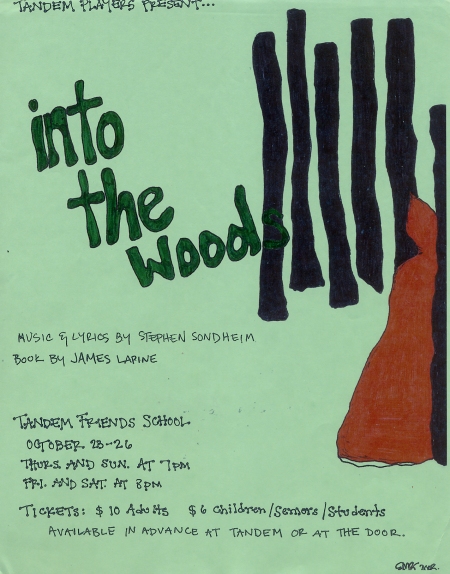 TANDEM PLAYERS PRESENT...
into
the
woods
MUSIC & LYRICS BY STEPHEN SONDHEIM
BOOK BY JAMES LAPINE
TANDEM FRIENDS SCHOOL
OCTOBER 23-26
THURS. AND SUN. AT 7PM
FRI. AND SAT. AT 8PM
TICKETS: $10 Adults $6 Children/Seniors/Students
AVAILABLE IN ADVANCE AT TANDEM OR AT THE DOOR.